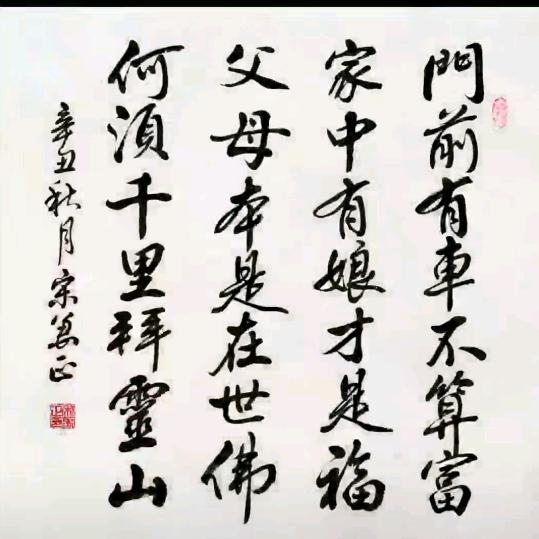 門前有車不算富
家中有娘才是福
父母本是在世佛
何須千里拜靈山
辛丑秋月宋为正